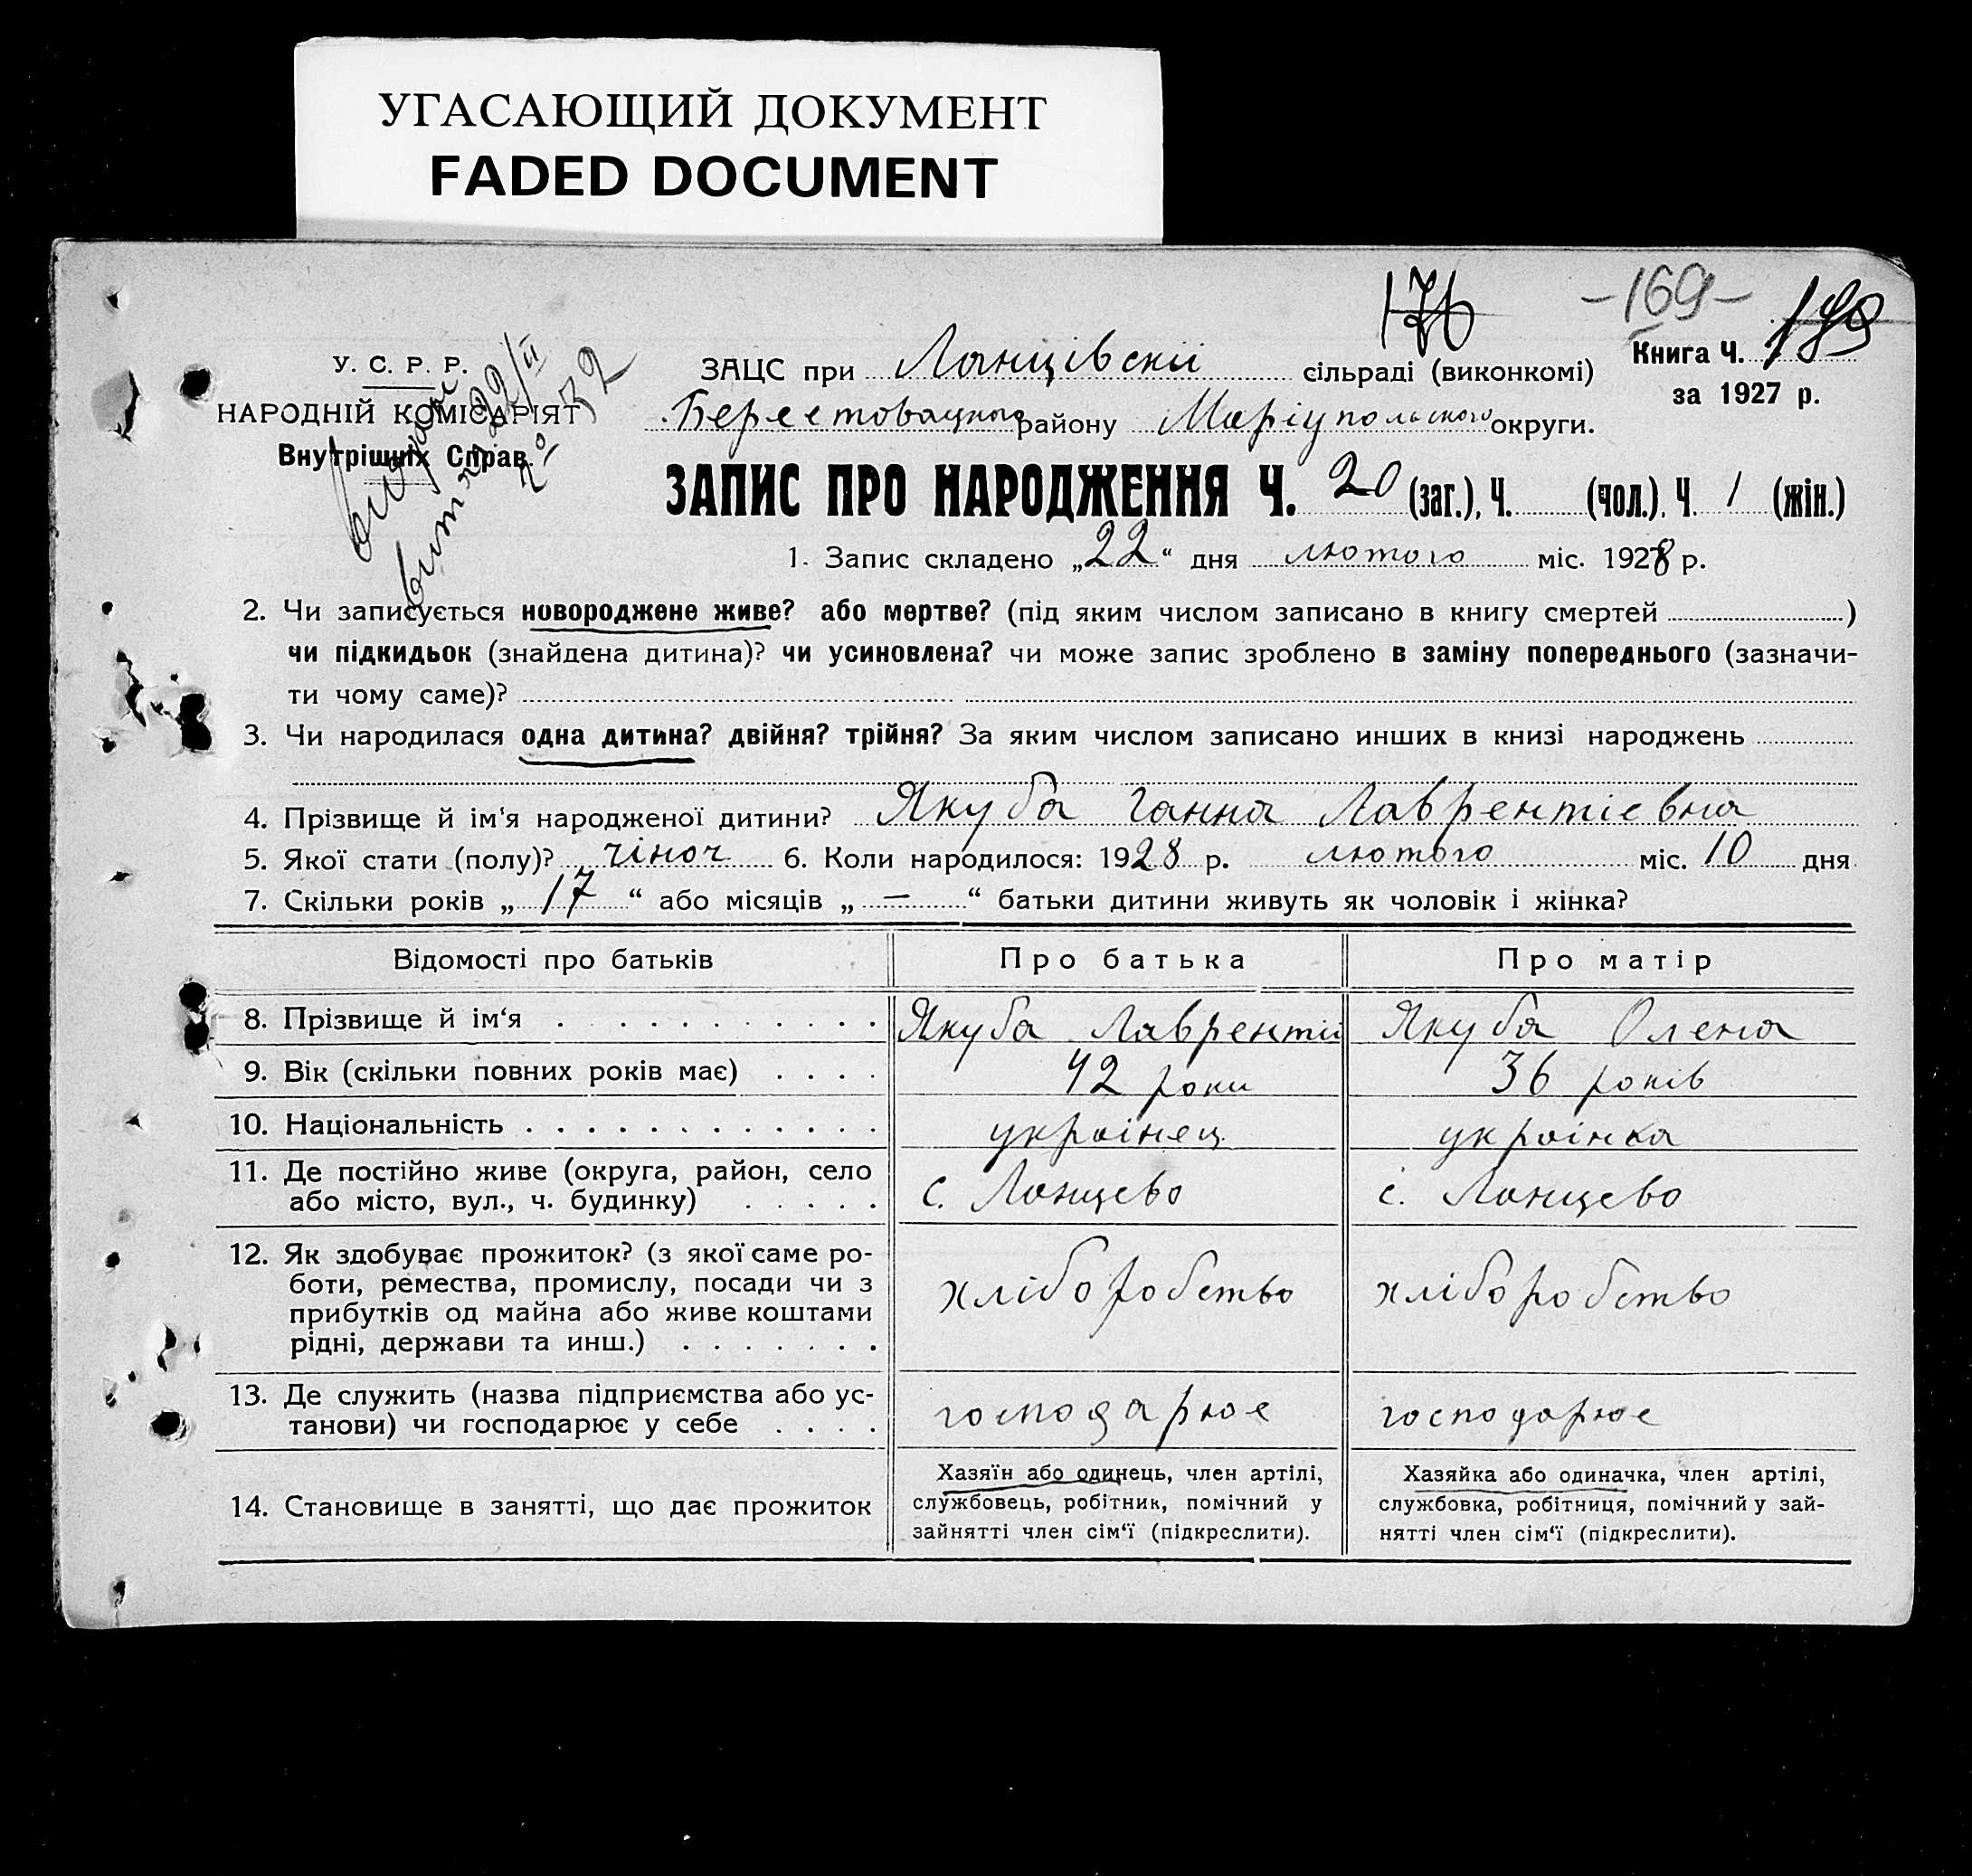 УГАСАЮЩИЙ ДОКУМЕНТ
FADED DOCUMENT
176
-169-
У. С. Р. Р.
НАРОДНІЙ КОМІСАРІЯТ
Внутрішніх Справ.
22/II
№ 32
ЗАЦС при Ланцівскій сільраді (виконкомі) Книга Ч.
за 1927 р.
Берестовацького району Маріупольского округи.
ЗАПИС ПРО НАРОДЖЕННЯ Ч. 20 (заг.), Ч. (чол.), Ч. 1 (жін.)
1. Запис складено „22“ дня лютого міс. 1928 р.
2. Чи записується новороджене живе? або мертве? (під яким числом записано в книгу смертей )
чи підкидьок (знайдена дитина)? чи усиновлена? чи може запис зроблено в заміну попереднього (зазначи-
ти чому саме)?
3. Чи народилася одна дитина? двійня? трійня? За яким числом записано инших в книзі народжень
4. Прізвище й ім‘я народженої дитини? Якуба Ганна Лаврентіевна
5. Якої стати (полу)? жіноч 6. Коли народилося: 1928 р. лютого міс. 10 дня
7. Скільки років „17“ або місяців „—“ батьки дитини живуть як чоловік і жінка?
Відомості про батьків Про батька Про матір
8. Прізвище й ім‘я Якуба Лаврентій Якуба Олена
9. Вік (скільки повних років має) 42 роки 36 років
10. Національність українец українка
11. Де постійно живе (округа, район, село
або місто, вул., ч. будинку) с. Ланцево с. Ланцево
12. Як здобуває прожиток? (з якої саме ро-
боти, ремества, промислу, посади чи з
прибутків од майна або живе коштами
рідні, держави та инш.) хліборобство хліборобство
13. Де служить (назва підприємства або ус-
танови) чи господарює у себе господарює господарює
14. Становище в занятті, що дає прожиток
Хазяїн або одинець, член артілі,
службовець, робітник, помічний у
зайнятті член сім‘ї (підкреслити).
Хазяйка або одиначка, член артілі,
службовка, робітниця, помічний у зай-
нятті член сім‘ї (підкреслити).